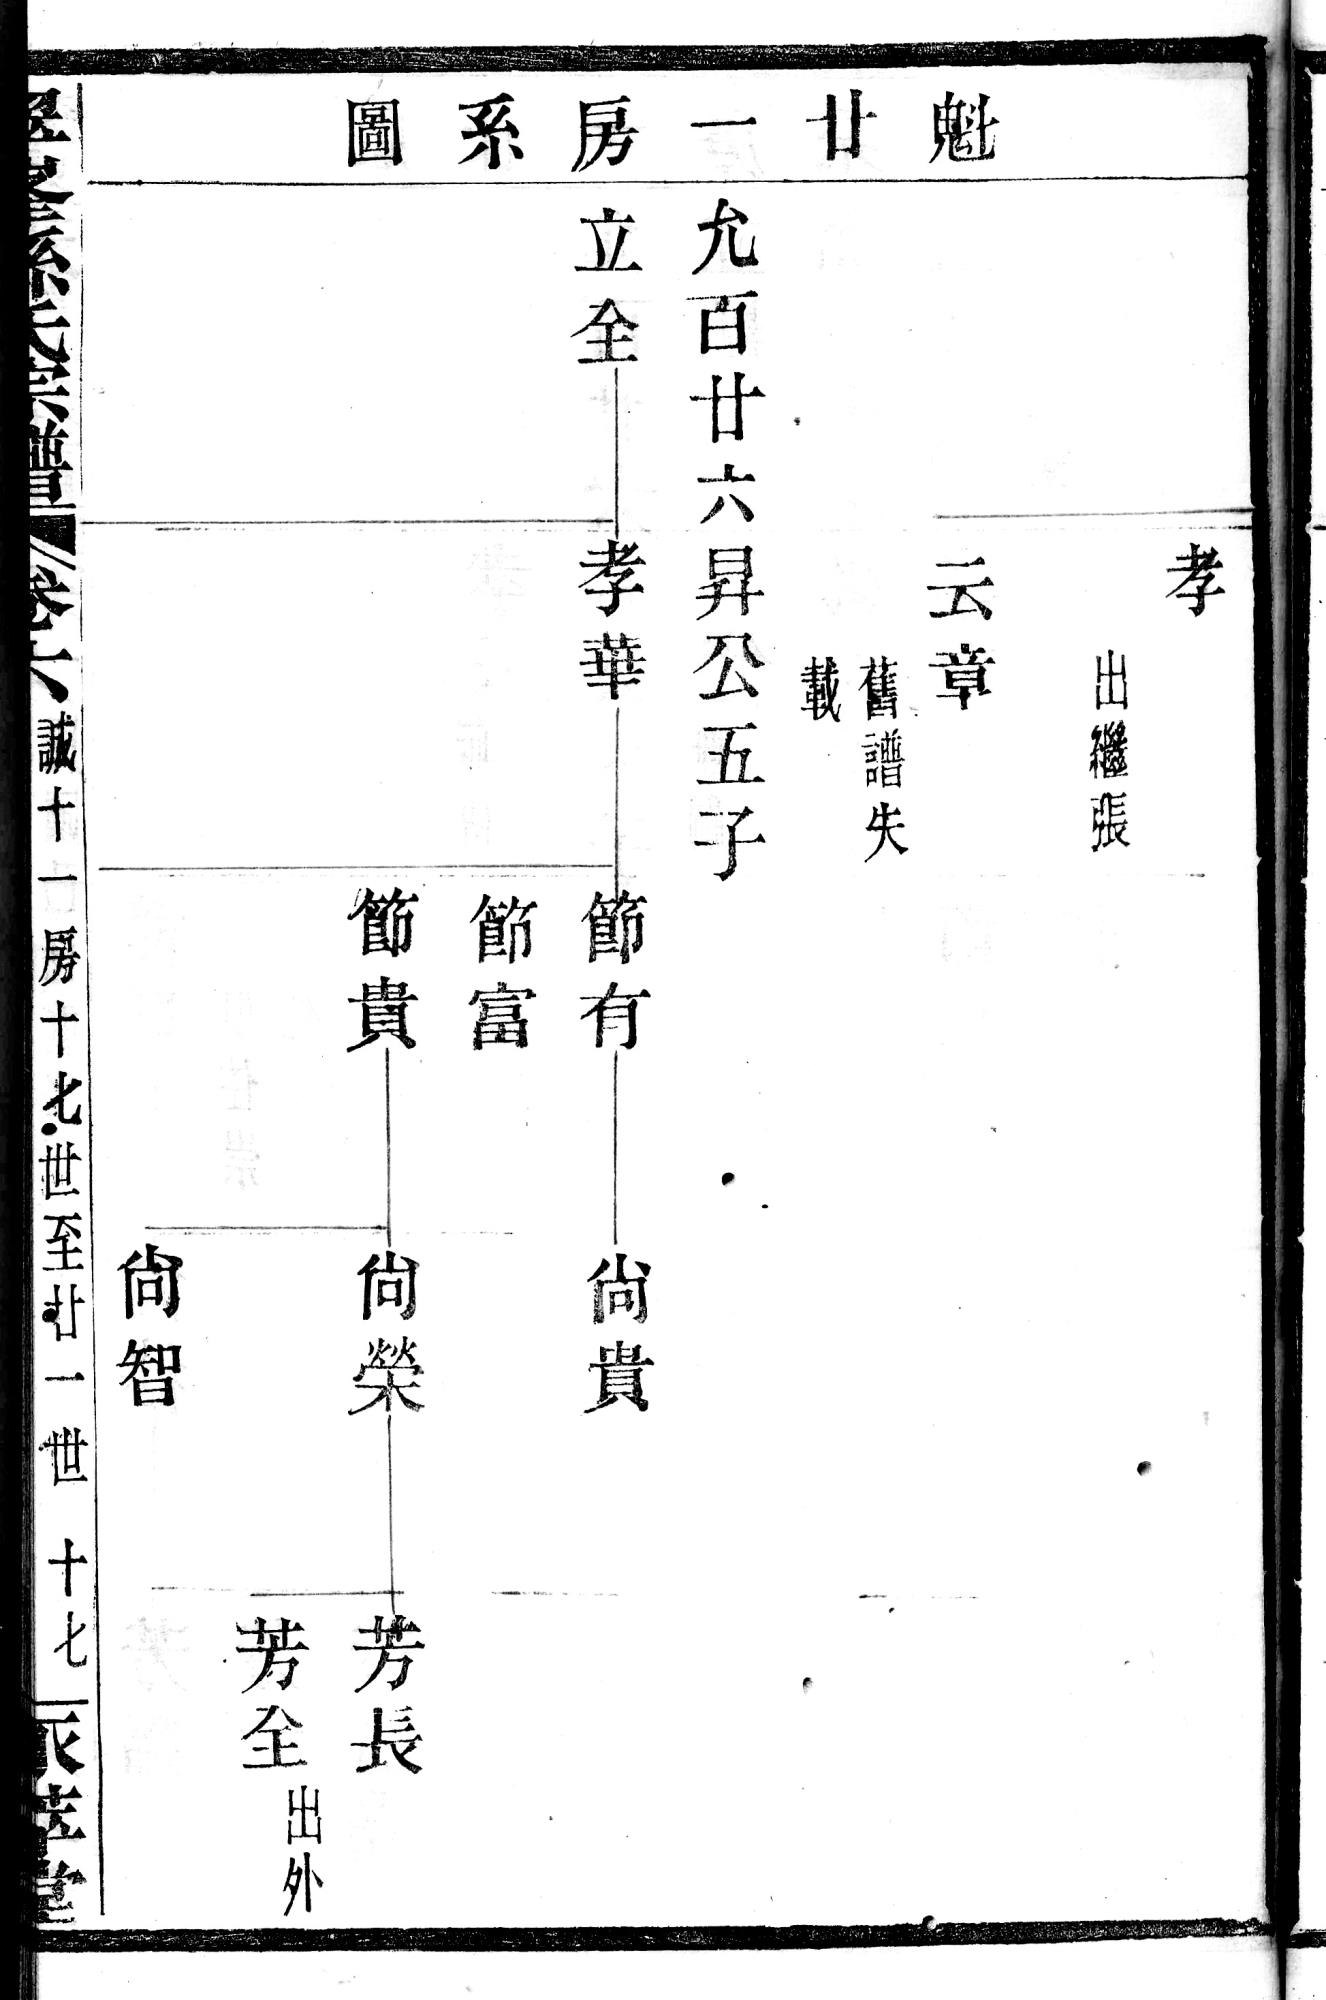 魁廿一房系圖
孝
出繼張
云章
舊譜失
載
允百廿六昇公五子
立全
孝華
節有
尙貴
節富
節貴
尙榮
芳長
芳全
出外
尙智
孫氏宗譜
卷六
誠十一房十七世至廿一世
十七
堂